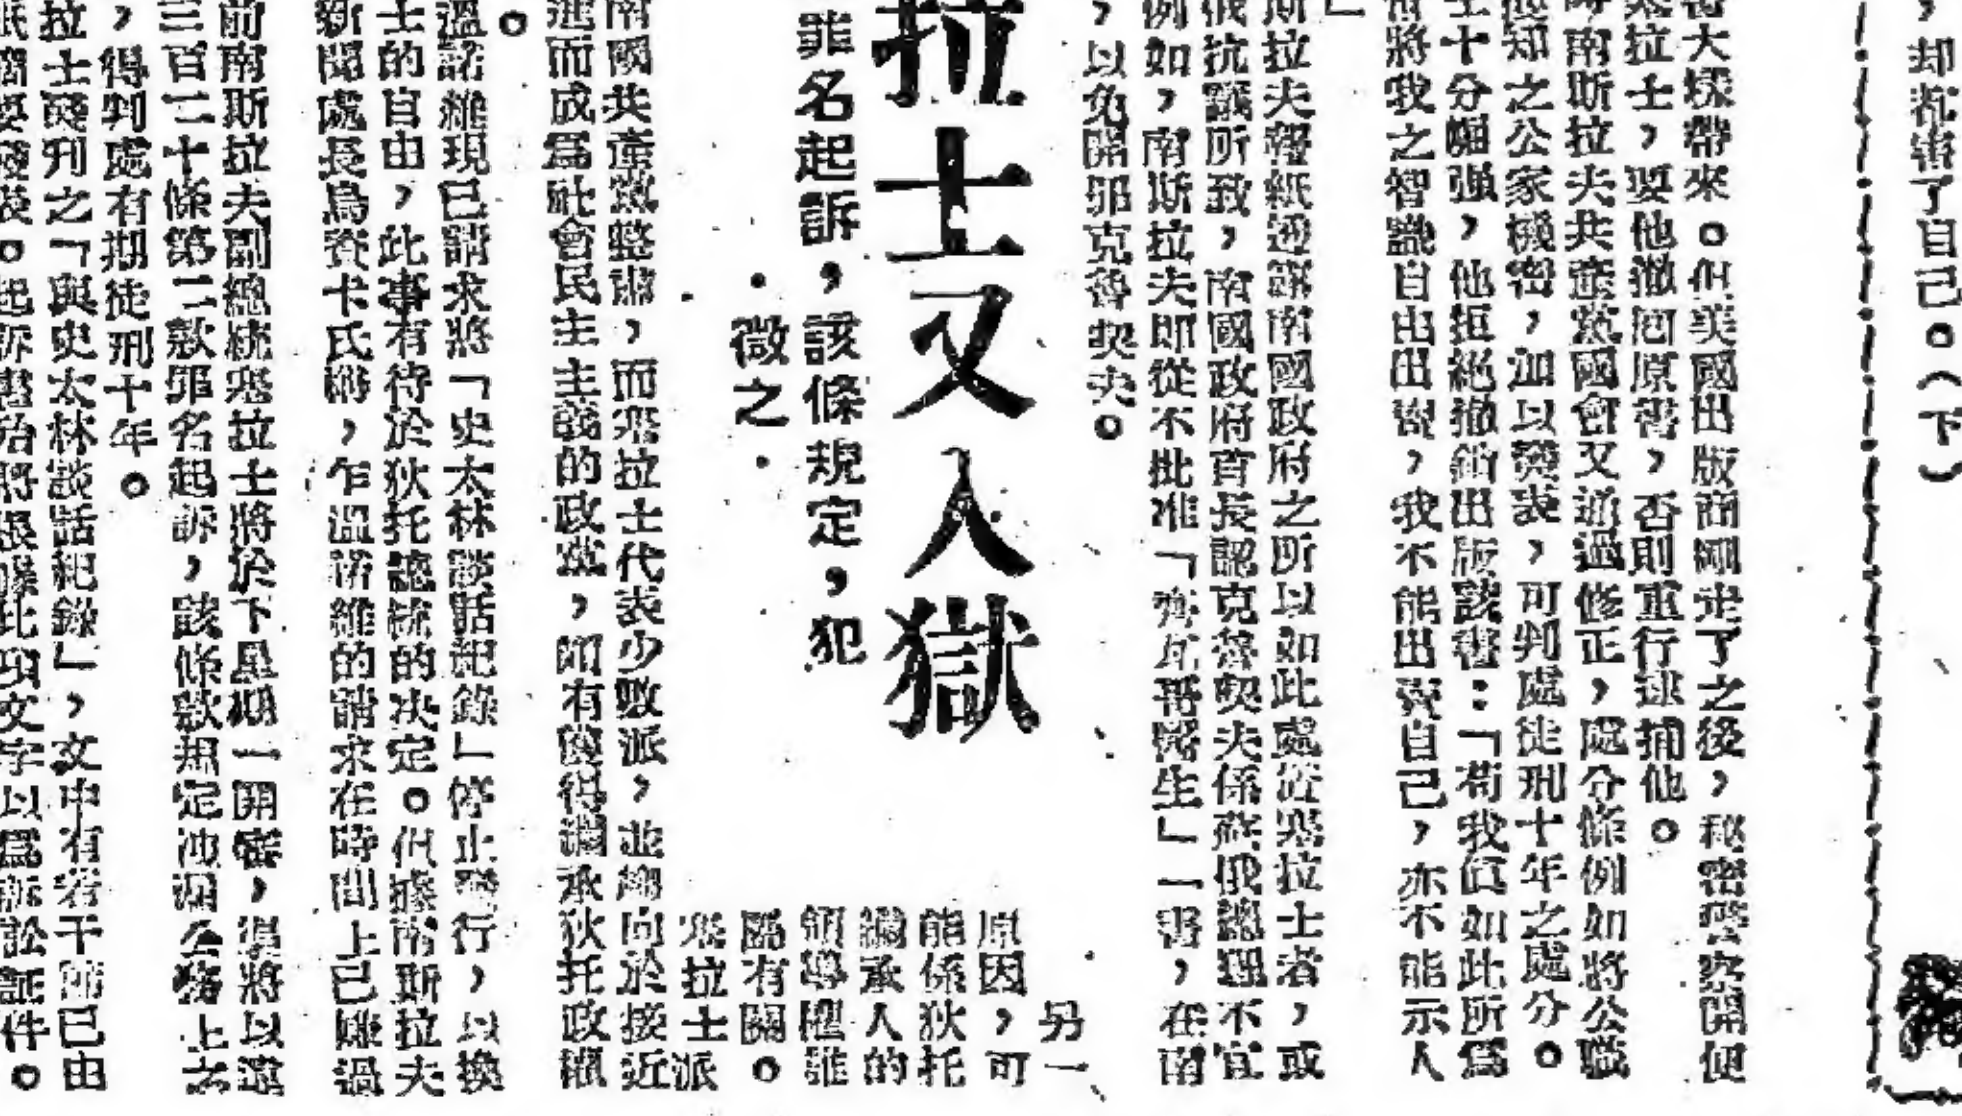 ，却都害了自己。（下）
書大樣帶來。但美國出版商剛走了之後，秘密警察開便
塞拉士，要他撤回原書，否則重行逮捕他。
時南斯拉夫共產黨國會又通過修正，處分條例如將公職
他知之公家機密，加以發表，可判處徒刑十年之處分。
士十分倔强，他拒絕撤銷出版該書：「苟我們如此所爲
會將我之智識自由出賣，我不能出賣自己，亦不能示人
」
斯拉夫報紙透露南國政府之所以如此處置塞拉士者，或
俄抗議所致，南國政府首長認克魯契夫係蘇俄總理不宜
例如，南斯拉夫即從不批准「齊瓦哥醫生」一書，在南
，以免開罪克魯契夫。
拉士又入獄
罪名起訴，該條規定，犯
・微之・
另一
原因，可
能係狄托
繼承人的
領導權誰
屬有關。
塞拉士派
南國共產黨整肅，而塞拉士代表少數派，並趨向於接近
進而成爲社會民主主義的政黨，即有獲得繼承狄托政權
。
溫諾維現已請求將「史太林談話紀錄」停止發行，以換
士的自由，此事有待於狄托總統的决定。但據南斯拉夫
新聞處長烏資卡氏稱，乍溫諾維的請求在時間上已嫌過
前南斯拉夫副總統塞拉士將於下星期一開審，渠將以違
三百二十條第二款罪名起訴，該條欵規定洩漏公務上之
，得判處有期徒刑十年。
拉士發刊之「與史太林談話紀錄」，文中有若干節已由
紙摘要發表。起訴書殆將根據此項文字以爲訴訟証件。